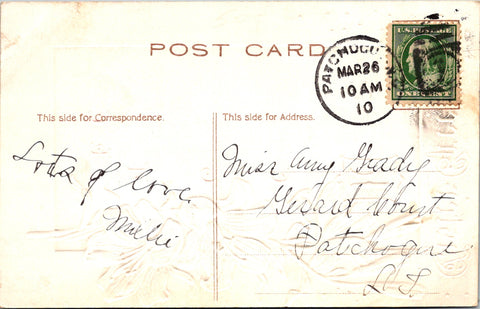 POST CARD
PATCHOGUE
MAR 26
10 AM
10
U.S. POSTAGE
ONE CENT
This side for Correspondence.
This side for Address.
Lots of love.
Millie
Miss Amy Grady
Gerard Court
Patchogue
L.I.